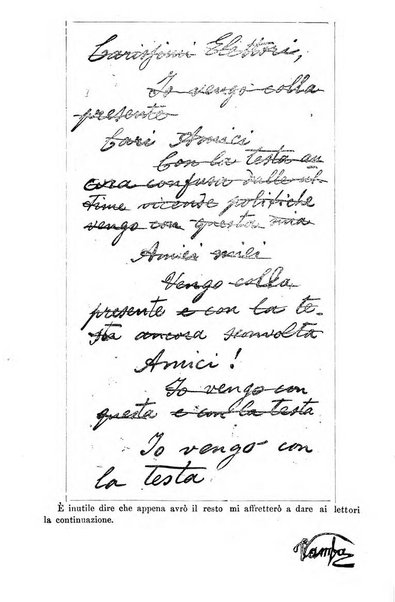 Carissimi Elettori,
Io vengo colla
presente
Cari Amici
Con la testa an
cora confusa dalle ul-
time vicende politiche
vengo con questa mia
Amici miei
Vengo colla
presente e con la te-
sta ancora sconvolta
Amici!
Io vengo con
questa e con la testa
Io vengo con
la testa
È inutile dire che appena avrò il resto mi affretterò a dare ai lettori
la continuazione.
Vamba